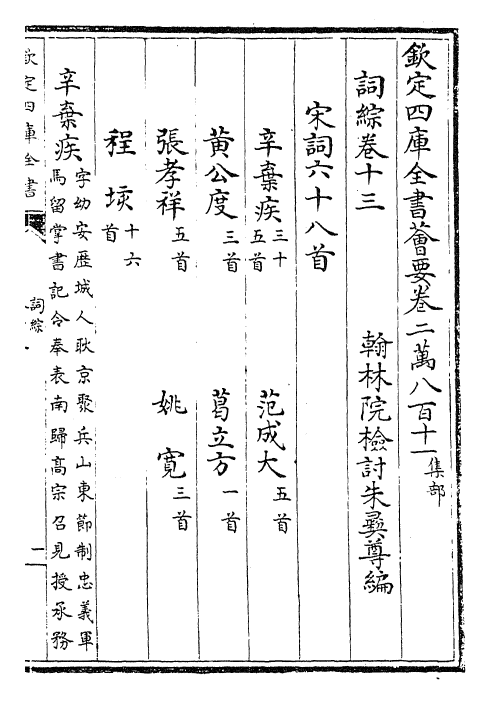 欽定四庫全書薈要卷二萬八百十一集部
詞綜卷十三
翰林院檢討朱彞尊編
宋詞六十八首
辛棄疾三十五首
范成大五首
黄公度三首
葛立方一首
張孝祥五首
姚寛三首
程垓十六首
辛棄疾字幼安歴城人耿京聚兵山東節制忠義軍
馬留掌書記令奉表南歸高宗召見授承務
欽定四庫全書
詞綜
一